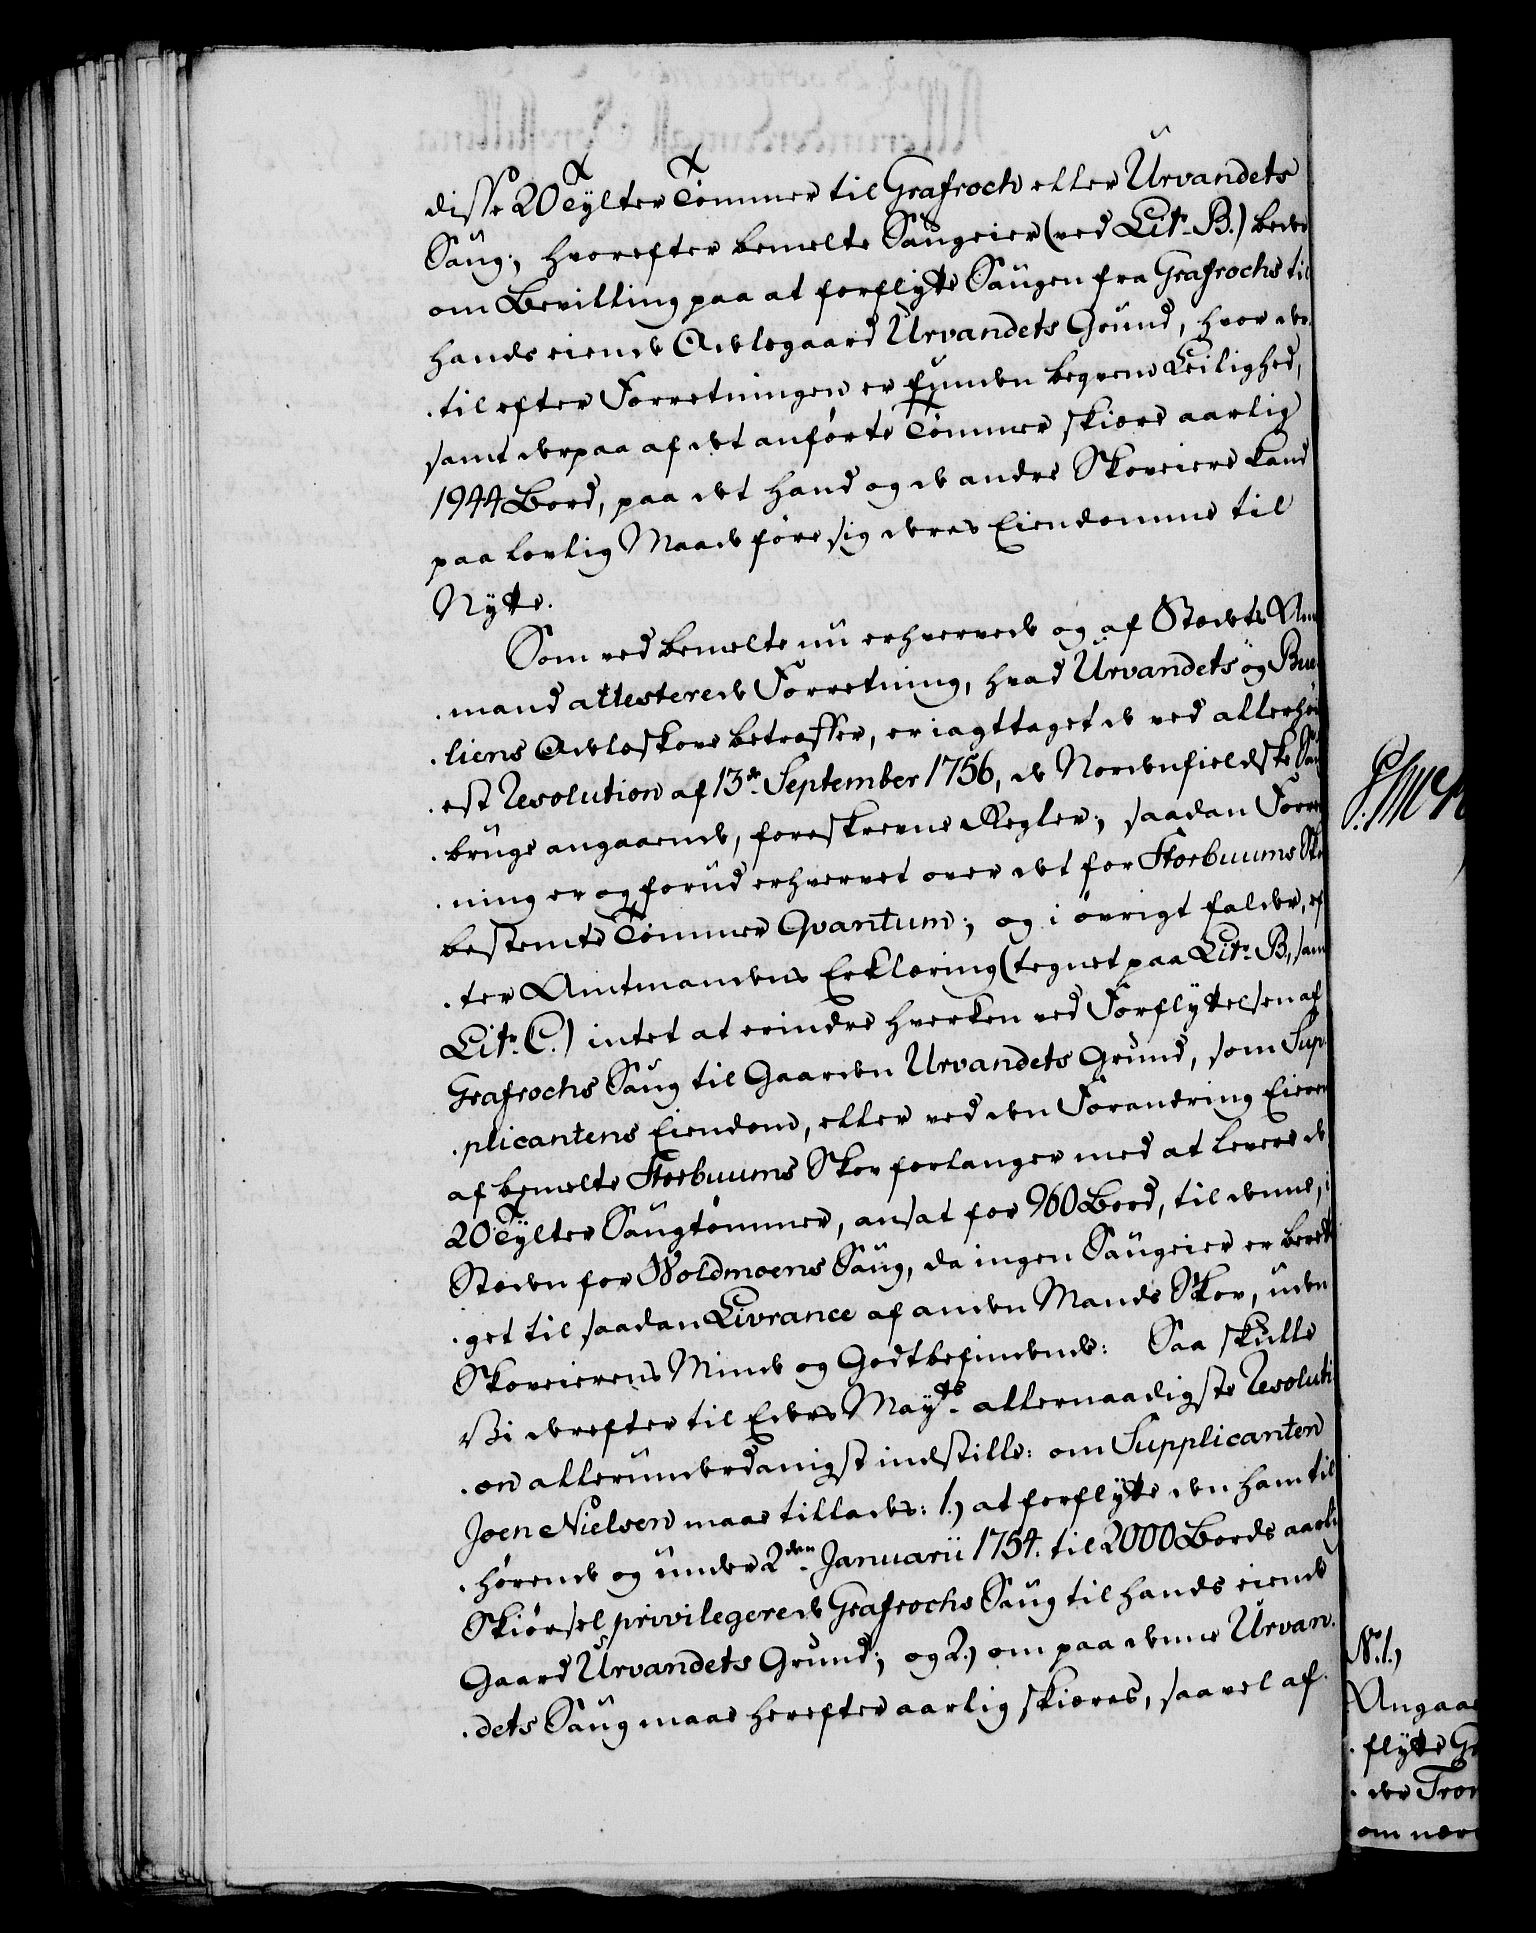 disse 20 Tylter Tømmer til Grafroch eller Urvandets
Saug; hvorefter bemelte Saugeier (ved Litr. B.) beder
om Bevilling paa at forflytte Saugen fra Grafrochs til
hands eiende Odelsgaard Urvandets Grund, hvor der
. til efter Forretningen er funden beqvem Leilighed,
samt derpaa af det anførte Tømmer skiære aarlig
1944 Bord, paa det hand og de andre Skoveiere kand
paa lovlig Maade føre sig deres Eiendomme til
Nytte.
Som ved bemelte nu erhvervede og af Stedets Amt
. mand attesterede Forretning, hvad Urvandets og Bue
. liens Odelsskove betræffer, er iagttaget de ved allerhøi
. est Resolution af 13de September 1756, de Nordenfieldske Saug
. bruge angaaende, foreskrevne Regler; saadan Forret
. ning er og forud erhvervet over det for Storbuums Skov
bestemte Tømmer Qvantum; og i øvrigt falder, ef
. ter Amtmandens Erklæring (tegnet paa Litr. B, samt
Litr. C.) intet at erindre hverken ved Forflyttelsen af
Grafrochs Saug til Gaarden Urvandets Grund, som Sup
. plicantens Eiendom, eller ved den Forandring Eieren
af bemelte Storbuums Skov forlanger med at levere de
20 Tylter Saugtømmer, ansat for 960 Bord, til denne, i
Steden for Woldmoens Saug, da ingen Saugeier er beret
. get til saadan Livrance af anden Mands Skov, uden
Skoveierens Minde og Godtbefindende: Saa skulle
Vi derefter til Eders Mayts. allernaadigste Resoluti
. on allerunderdanigst indstille: om Supplicanten
Joen Nielsen maae tillades: 1.) at forflytte den ham til
. hørende og under 2den Januarii 1754. til 2000 Bords aarlig
Skiørsel privilegerede Grafrochs Saug til hands eiende
Gaard Urvandets Grund; og 2.) om paa denne Urvan.
. dets Saug maae herefter aarlig skiæres, saavel af
No. 1.)
Angaa
. flytte Gr
. der Tron
om nær